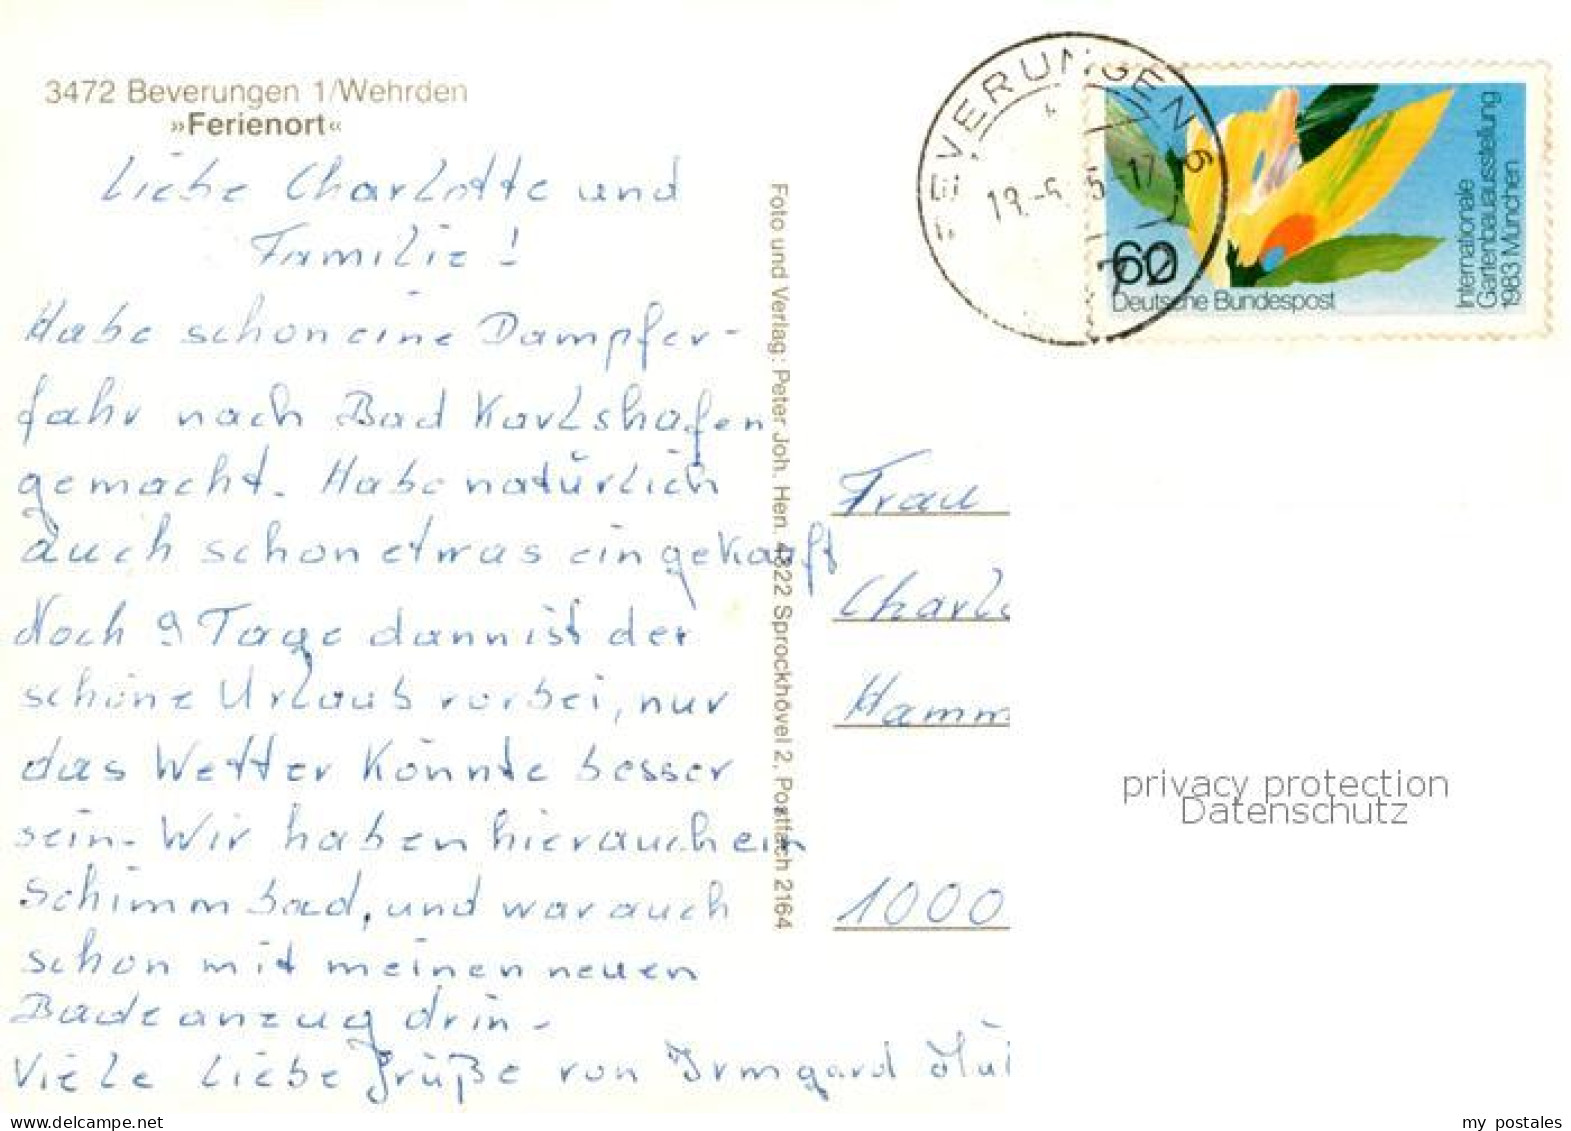 3472 Beverungen 1/Wehrden
»Ferienort«
Liebe Charlotte und
Familie!
Habe schon eine Dampfer-
fahr nach Bad Karlshafen
gemacht. Habe natürlich
auch schon etwas eingekauft
Noch 9 Tage dann ist der
schöne Urlaub vorbei, nur
das Wetter könnte besser
sein. Wir haben hier auch ein
Schimmbad, und war auch
schon mit meinen neuen
Badeanzug drin.
Viele liebe Grüße von Irmgard
Foto und Verlag: Peter Joh. Hen. 4322 Sprockhövel 2, Postfach 2164
BEVERUNGEN
60
Deutsche Bundespost
Internationale
Gartenbauausstellung
1983 München
Frau
Charlo
Hamm
1000
privacy protection
Datenschutz
www.delcampe.net
my_postales